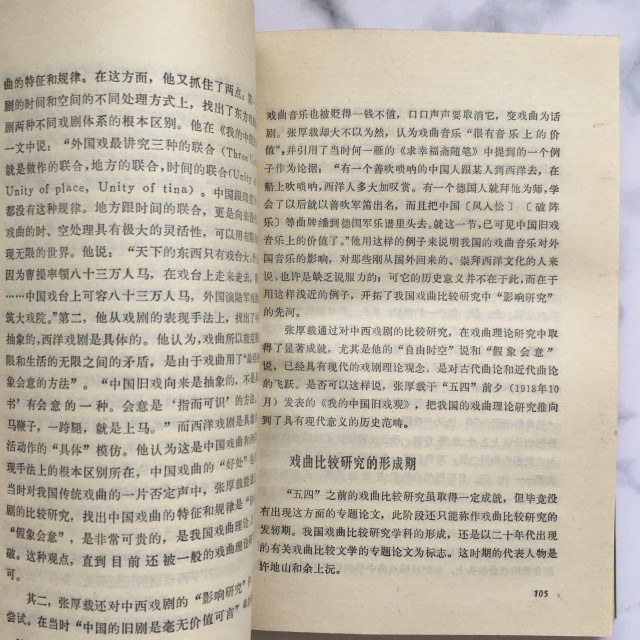 曲的特征和规律。在这方面，他又抓住了两点：第一
剧的时间和空间的不同处理方式上，找出了东方
剧两种不同戏剧体系的根本区别。他在《我的中国
一文中说：“外国戏最讲究三种的联合（Three U
就是做作的联合，地方的联合，时间的联合（Unity o
Unity of place, Unity of tina）。中国跟印度
都没有这种规律。地方跟时间的联合，更是向来
戏曲的时、空处理具有极大的灵活性，可以用有限
现无限的世界。他说：“天下的东西只有戏台大，
因为曹操率领八十三万人马，在戏台上走来走去，
……中国戏台上可容八十三万人马，外国演陆军
筑大戏院。”第二，他从戏剧的表现手法上，找出了
抽象的，西洋戏剧是具体的。他认为，戏曲所以能
限和生活的无限之间的矛盾，是由于戏曲用了“
象会意的方法”。“中国旧戏向来是抽象的，不是
书’有会意的一种。会意是‘指而可识’的方法，
马鞭子，一跨腿，就是上马。”而西洋戏剧是具
活动作的“具体”模仿。他认为这是中国戏曲和西
现手法上的根本区别所在，中国戏曲的“好处”
当时对我国传统戏曲的一片否定声中，张厚载能
剧的比较研究，找出中国戏曲的特征和规律是“
“假象会意”，是非常可贵的，是我国戏曲理论
破。这种观点，直到目前还被一般的戏曲理论
可。
其二，张厚载还对中西戏剧的“影响研究”
尝试。在当时“中国的旧剧是毫无价值可言”
戏曲音乐也被贬得一钱不值，口口声声要取消它，变戏曲为话
剧。张厚载却大不以为然，认为戏曲音乐“很有音乐上的价
值”，并引用了当时何一雁的《求幸福斋随笔》中提到的一个例
子作为论据：“有一个善吹唢呐的中国人跟某人到西洋去，在
船上吹唢呐，西洋人多大加叹赏。有一个德国人就拜他为师，学
会了以后就以善吹军笛出名，而且把中国〔风入松〕〔破阵
乐〕等曲牌播到德国军乐谱里头去。就这一节，已可见中国旧戏
音乐上的价值了。”他用这样的例子来说明我国的戏曲音乐对外
国音乐的影响，对那些刚从国外回来的、崇拜西洋文化的人来
说，也许是缺乏说服力的；可它的历史意义并不在于此，而在于
用这样浅近的例子，开拓了我国戏曲比较研究中“影响研究”
的先河。
张厚载通过对中西戏剧的比较研究，在戏曲理论研究中取
得了显著成就，尤其是他的“自由时空”说和“假象会意”
说，已经具有现代的戏剧理论观念，是对古代曲论和近代曲论
的飞跃。是否可以这样说，张厚载于“五四”前夕（1918年10
月）发表的《我的中国旧戏观》，把我国的戏曲理论研究推向
到了具有现代意义的历史范畴。
戏曲比较研究的形成期
“五四”之前的戏曲比较研究虽取得一定成就，但毕竟没
有出现这方面的专题论文，此阶段还只能称作戏曲比较研究的
发轫期。我国戏曲比较研究学科的形成，还是以二十年代出现
的有关戏曲比较文学的专题论文为标志。这时期的代表人物是
许地山和余上沅。
105